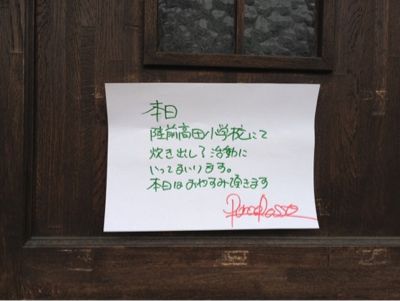 本日
陸前高田小学校にて
炊き出し活動に
いってまいります。
本日はおやすみ頂きます